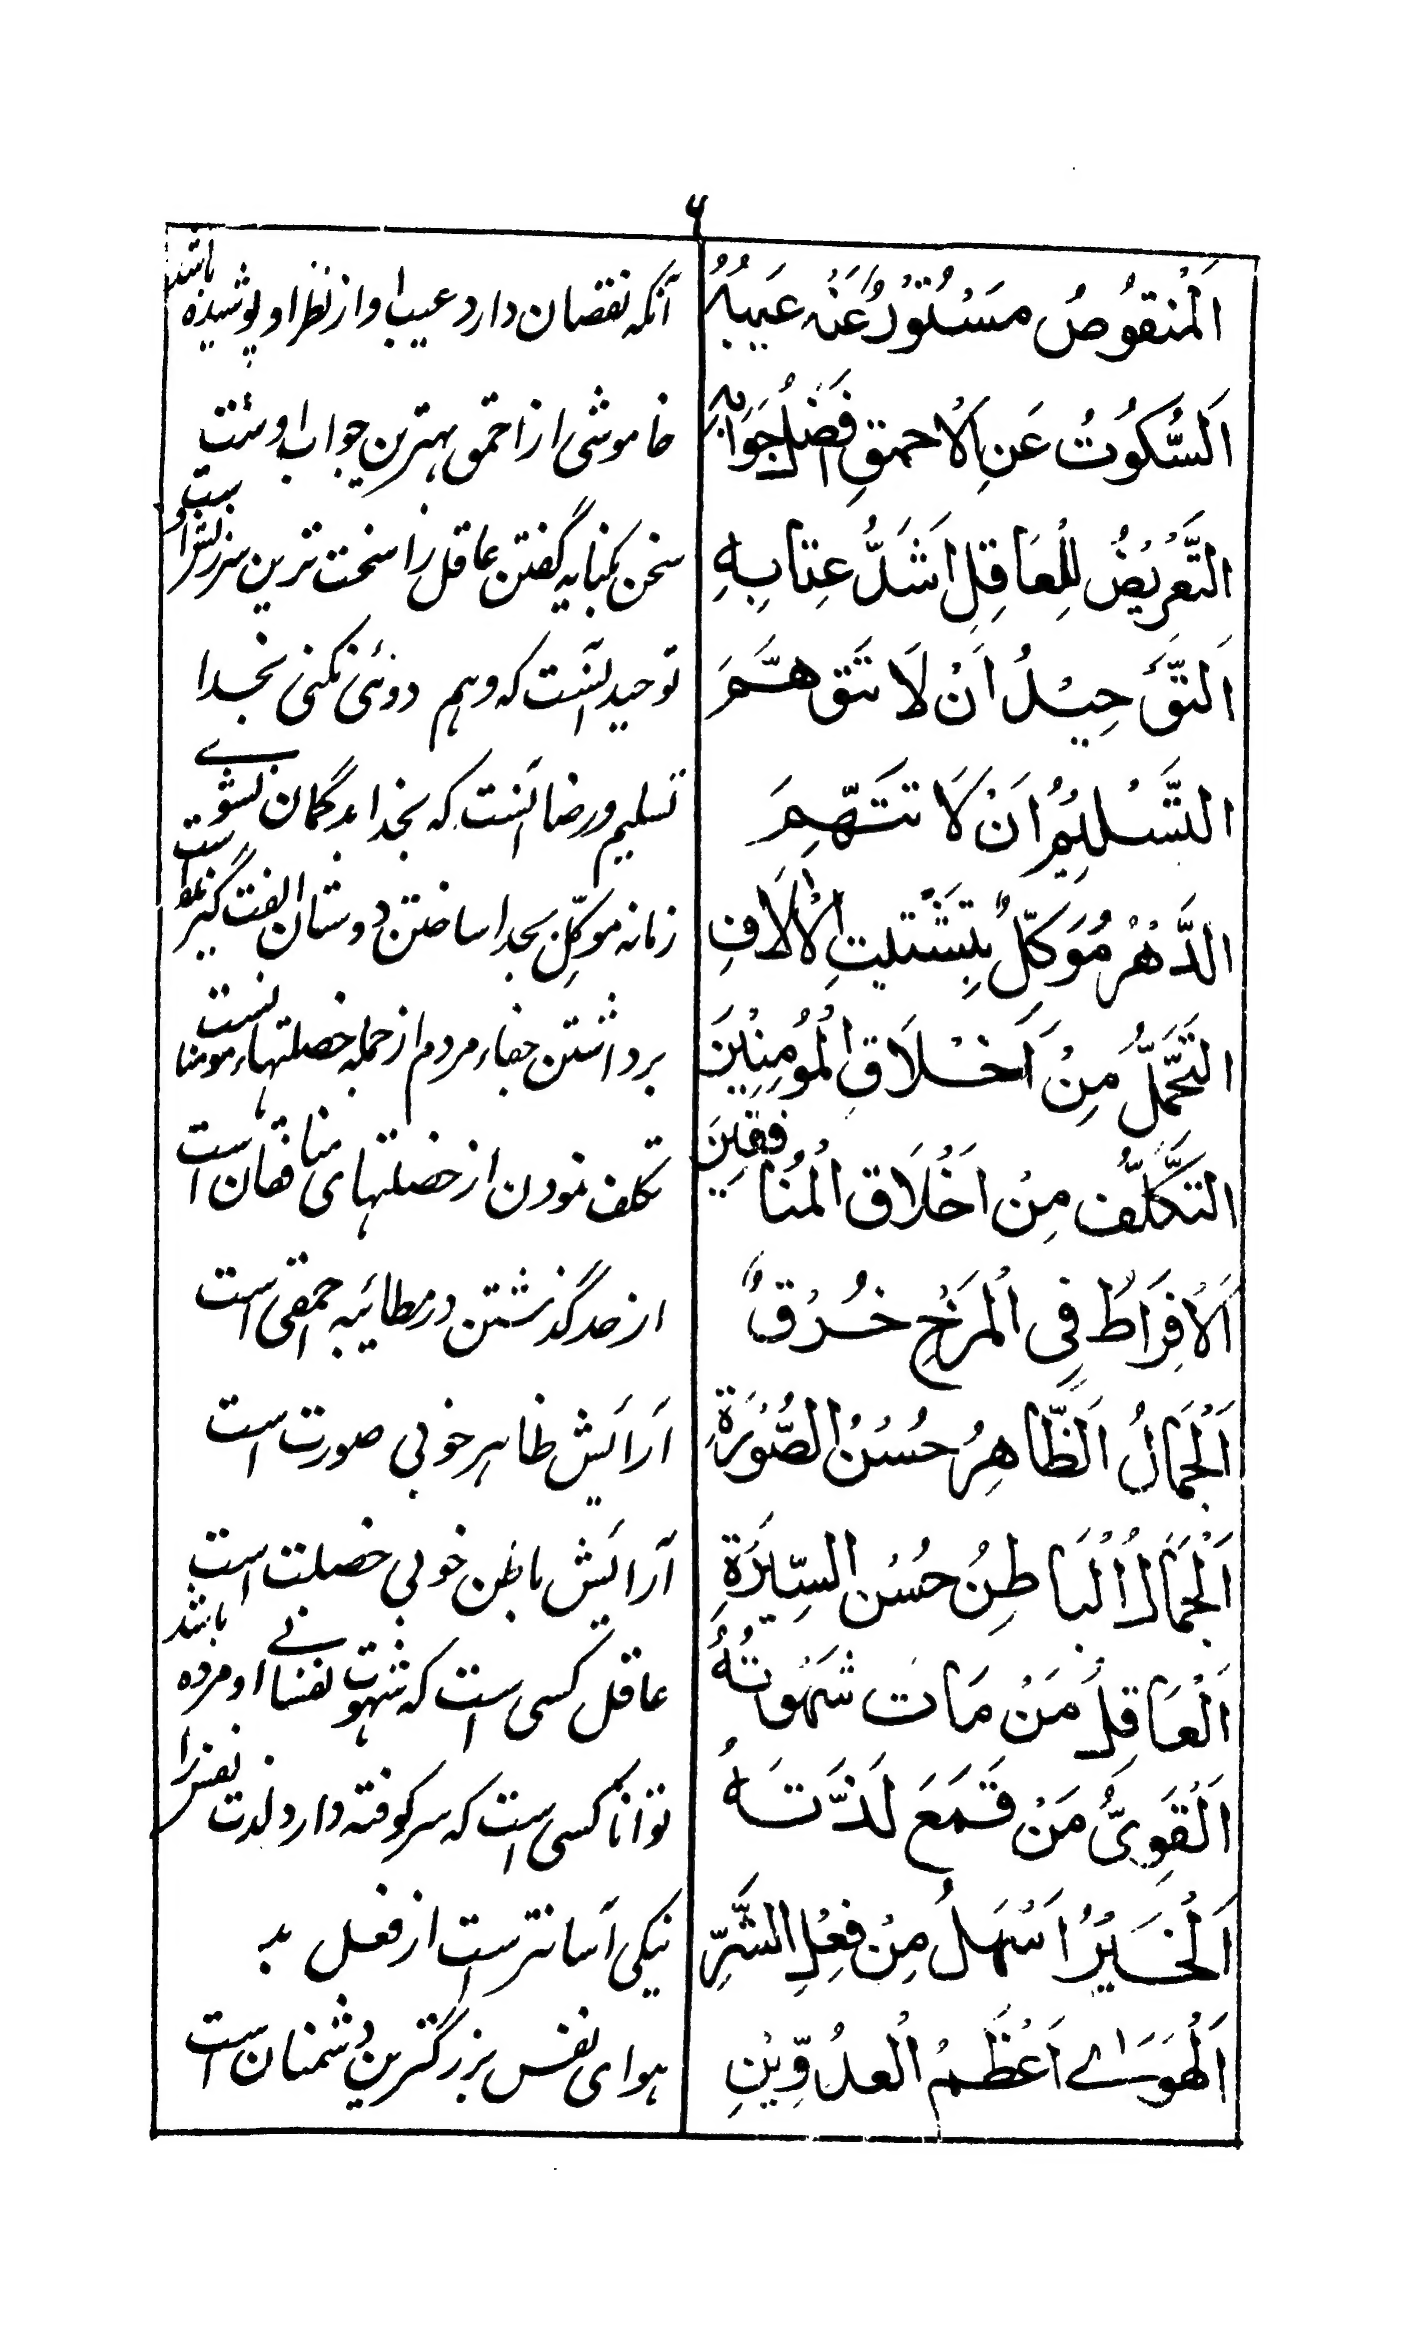 ۶
اَلْمَنْقُوصُ مَسْتُوْرٌ عَنْهُ عَيْبُهُ
آنکه نقصان دارد عیب او از نظر او پوشیده باشد
اَلسُّكُوتُ عَنِ الْاَحْمَقِ اَفْضَلُ جَوَابِهِ
خاموشی از احمق بهترین جواب اوست
التَّعْرِيْضُ لِلْعَاقِلِ اَشَدُّ عِتَابِهِ
سخن بکنایه گفتن عاقل را سخت ترین سرزنش اوست
اَلتَّوْحِيْدُ اَنْ لَا تَتَوَهَّمَ
توحید آنست که وهم دوئی نکنی بخدا
التَّسْلِيْمُ اَنْ لَا تَتَّهِمَ
تسلیم و رضا آنست که بخدا بدگمان نشوے
الدَّهْرُ مُوَكِّلٌ بِتَشْتِيتِ الْاُلَّافِ
زمانه موکّل بجدا ساختن دوستان الفت گیر است
التَّحَمُّلُ مِنْ اَخْلَاقِ الْمُؤْمِنِيْنَ
برداشتن جفاء مردم از جمله خصلتهاء مومنانست
التَّكَلُّفُ مِنْ اَخْلَاقِ الْمُنَافِقِيْنَ
تکلف نمودن از خصلتهای منافقان است
اَلْاِفْرَاطُ فِي الْمَزْحِ خُرْقٌ
از حد گذشتن در مطائبه احمقی است
اَلْجَمَالُ اَلظَّاهِرُ حُسْنُ الصُّوْرَةِ
آرایش ظاهر خوبی صورت است
اَلْجَمَالُ الْبَاطِنُ حُسْنُ السِّيْرَةِ
آرایش باطن خوبی خصلت است
اَلْعَاقِلُ مَنْ مَاتَ شَهْوَتُهُ
عاقل کسی است که شهوت نفسانے او مرده باشد
اَلْقَوِيُّ مَنْ قَمَعَ لَذَّتَهُ
توانا کسی است که سرکوفته دارد لذت نفس را
اَلْخَيْرُ اَسْهَلُ مِنْ فِعْلِ الشَّرِّ
نیکی آسانتر است از فعل بد
اَلْهَوَاے اَعْظَمُ الْعَدُوَّيْنِ
هوای نفس بزرگترین دشمنان است